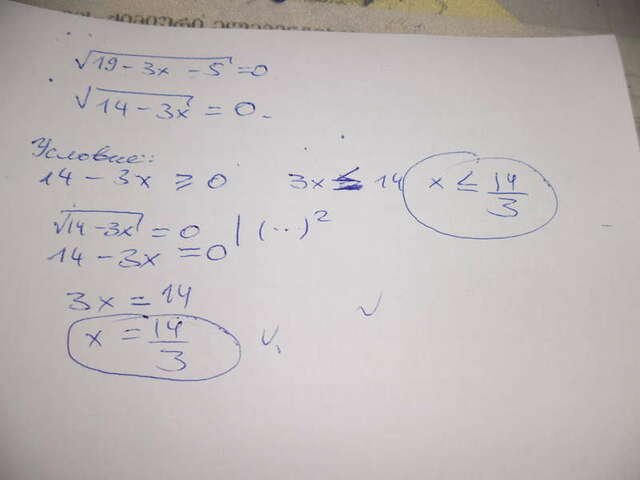 √19 - 3x - 5 = 0
√14 - 3x = 0.
Условие:
14 - 3x ≥ 0 3x ≤ 14 x ≤ 14/3
√14 - 3x = 0 | (...)²
14 - 3x = 0
3x = 14
x = 14/3